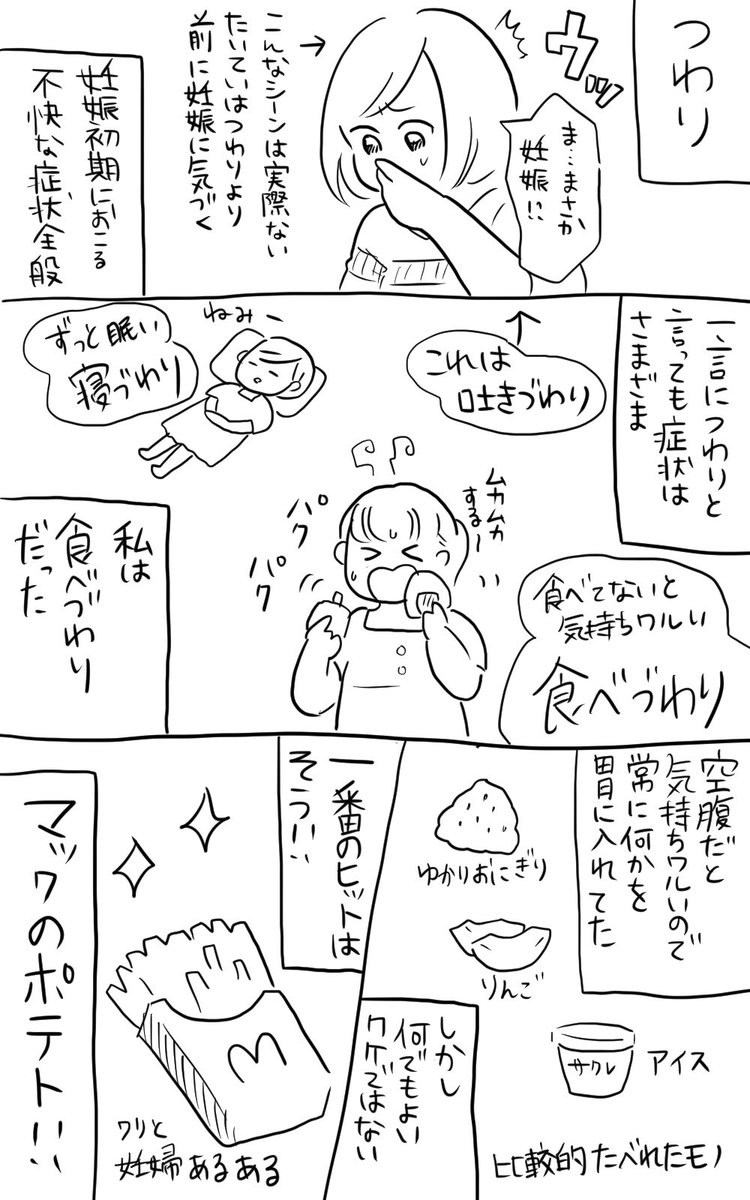 つわり
ウッ
ま…まさか
妊娠!!
こんなシーンは実際ない
たいていはつわりより
前に妊娠に気づく
妊娠初期におこる
不快な症状全般
一言につわりと
言っても症状は
さまざま
これは
吐きづわり
ねみー
ずっと眠い
寝づわり
食べてないと
気持ちワルい
食べづわり
ムカムカ
する〜
パク
パク
私は
食べづわり
だった
空腹だと
気持ちワルいので
常に何かを
胃に入れてた
ゆかりおにぎり
りんご
サクレ
アイス
比較的たべれたモノ
しかし
何でもよい
ワケではない
一番のヒットは
そう!!
M
マックのポテト!!
ワリと
妊婦あるある